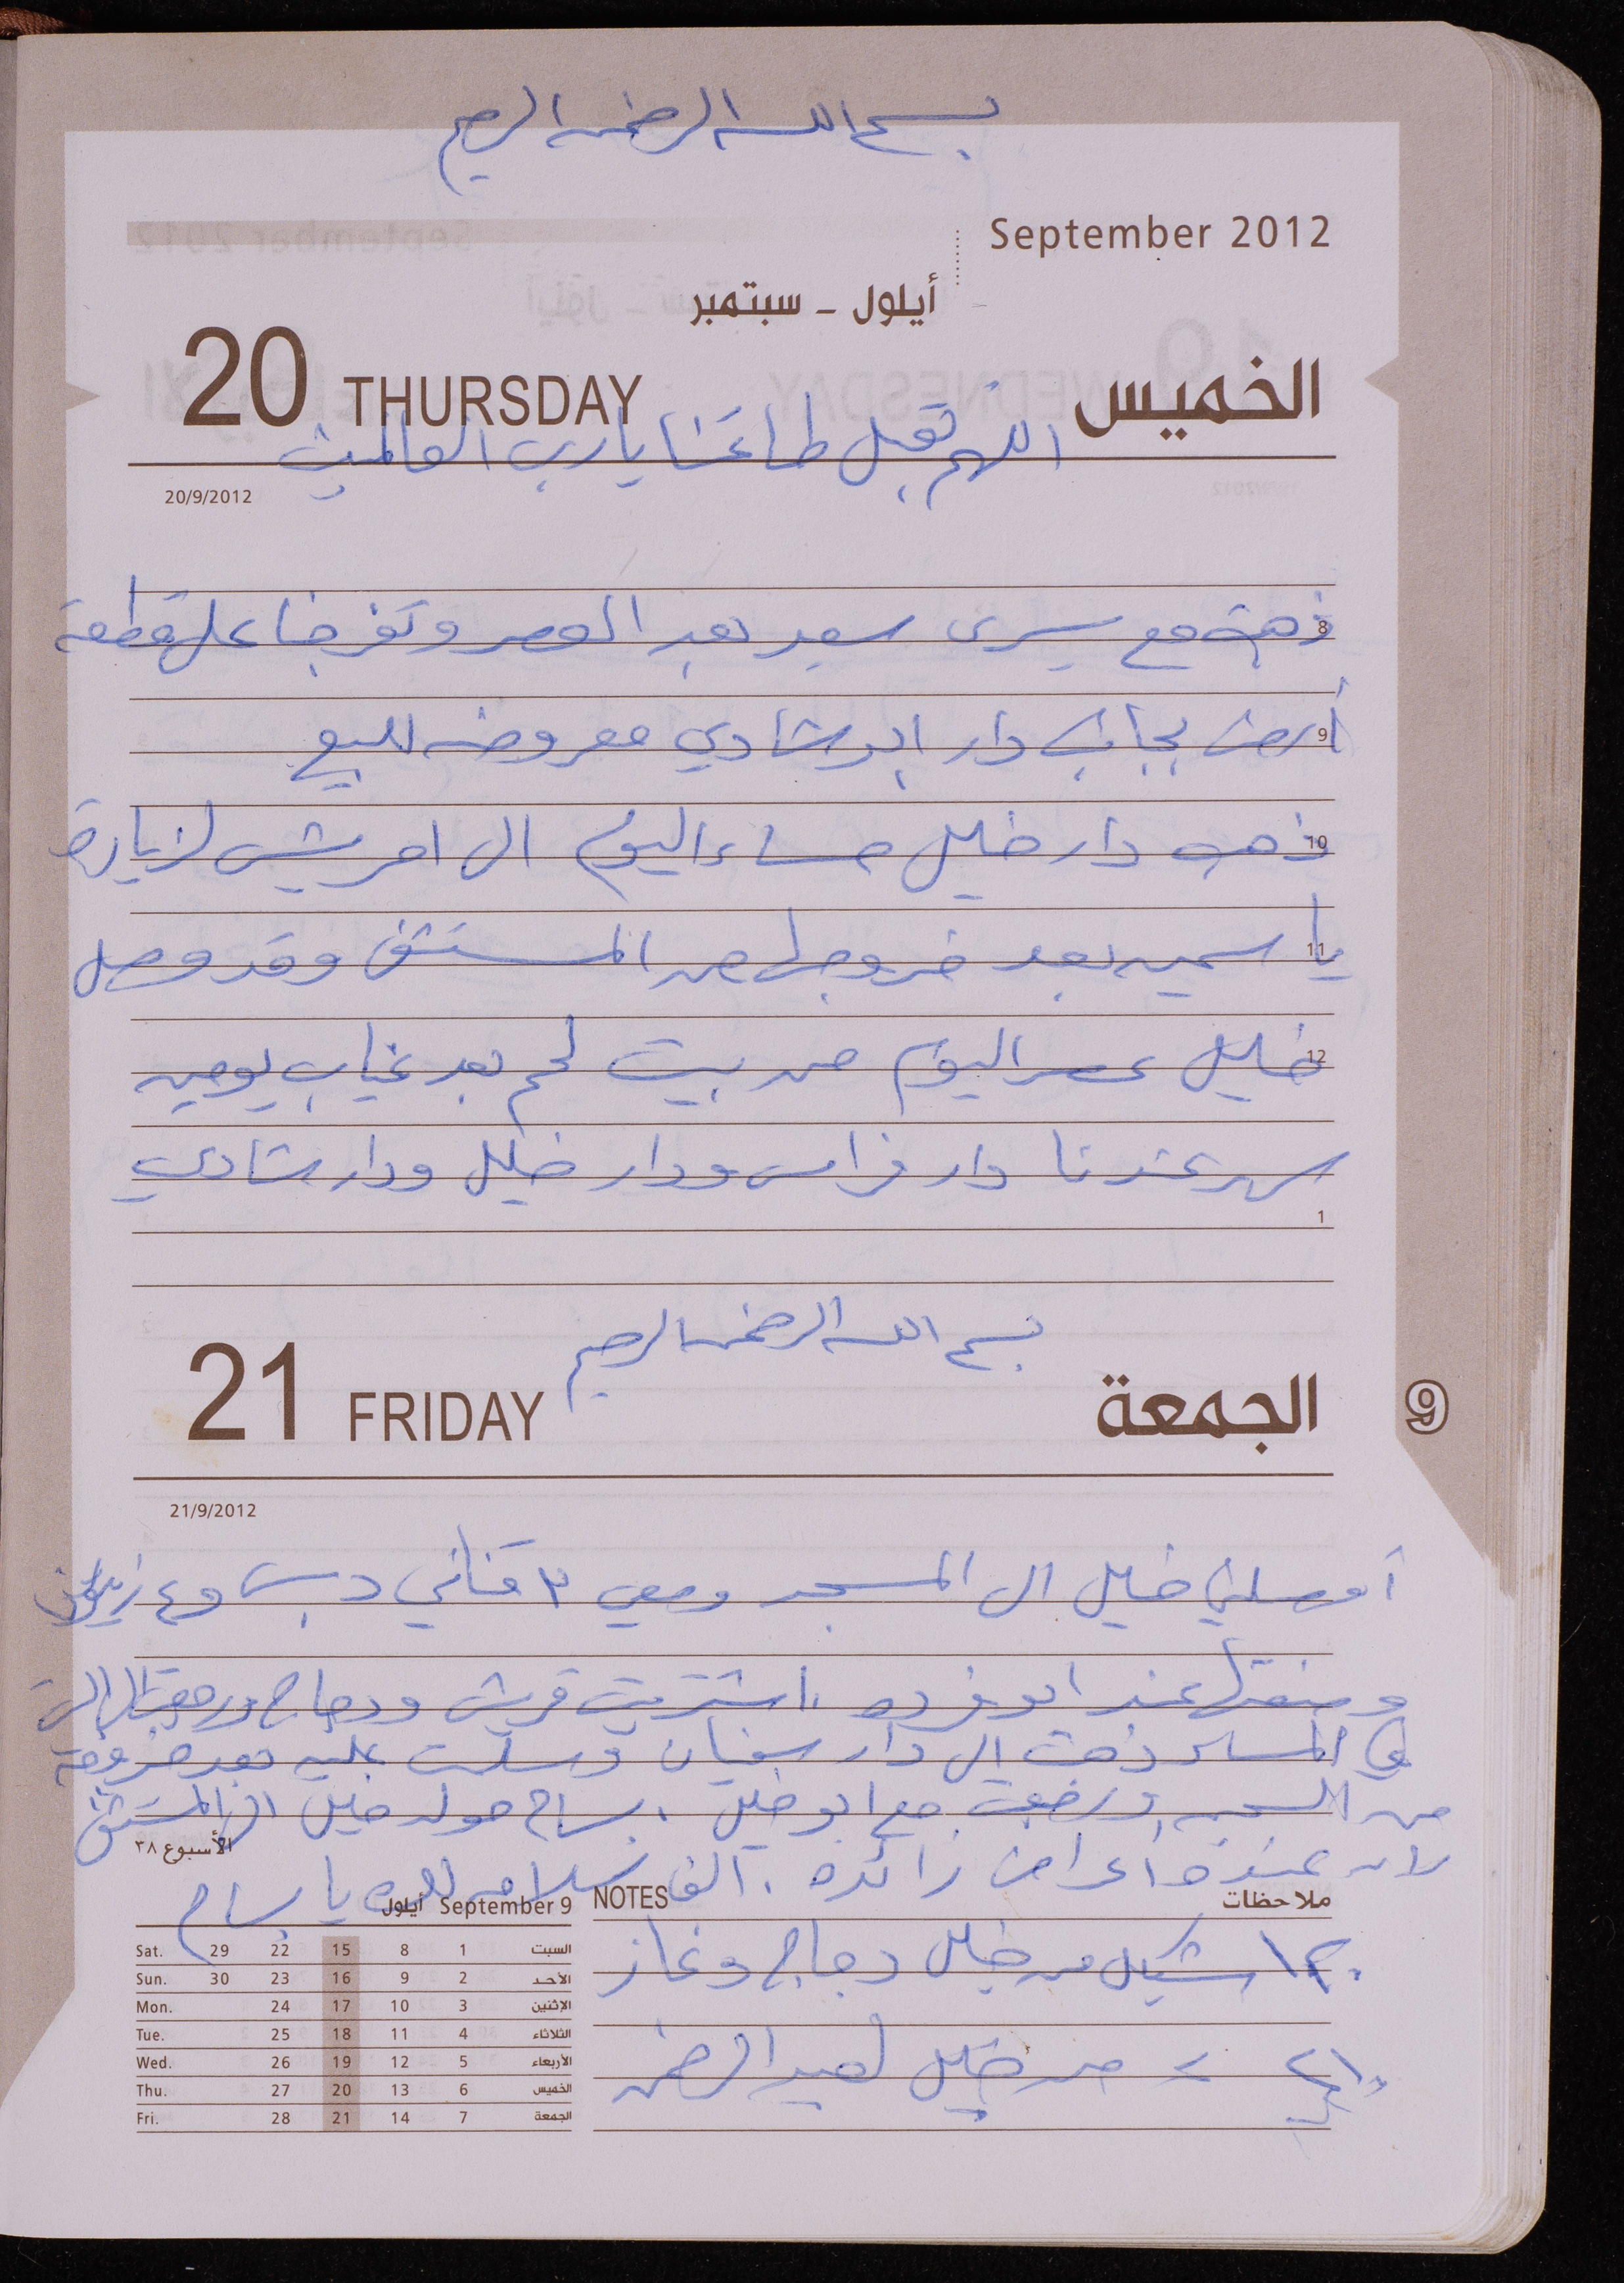 بسم الله الرحمن الرحيم
September 2012
أيلول - سبتمبر
20 THURSDAY الخميس
اللهم تقبل طاعتنا يا رب العالمين
20/9/2012
8 ذهبت مع يسرى سعيد بعد العصر وتفرجنا على قطعة
9 أرض بجانب دار ابو شادي معروضه للبيع
10 ذهب دار خليل مساء اليوم الى امريش لزيارة
11 ياسمين بعد خروجها من المستشفى وقد وصل
12 خليل عصر اليوم من بيت لحم بعد غياب يومين
سهر عندنا دار فراس ودار خليل ودار شادي
1
بسم الله الرحمن الرحيم
21 FRIDAY الجمعة
9
21/9/2012
أوصلني خليل الى المسجد ومعي ٣ قناني دبس و٤ زيتون
وضعتها عند ابو اشتريت قريش ودجاج ورجعت الى البيت
في المساء ذهبت الى دار سفيان وسلمت عليه بعد خروجه
من السجن ورجعت مع ابو خليل . بسام حوله خليل الى المستشفى
الأسبوع ٣٨
لانه عنده اعراض زائده . الف سلامه لك يا بسام
NOTES ملاحظات
١٢٠ شيكل من خليل دجاج وغاز
٢١٠ = من خليل لعبد الرحمن
September 9 أيلول
Sat. 29 22 15 8 1 السبت
Sun. 30 23 16 9 2 الأحد
Mon. 24 17 10 3 الإثنين
Tue. 25 18 11 4 الثلاثاء
Wed. 26 19 12 5 الأربعاء
Thu. 27 20 13 6 الخميس
Fri. 28 21 14 7 الجمعة